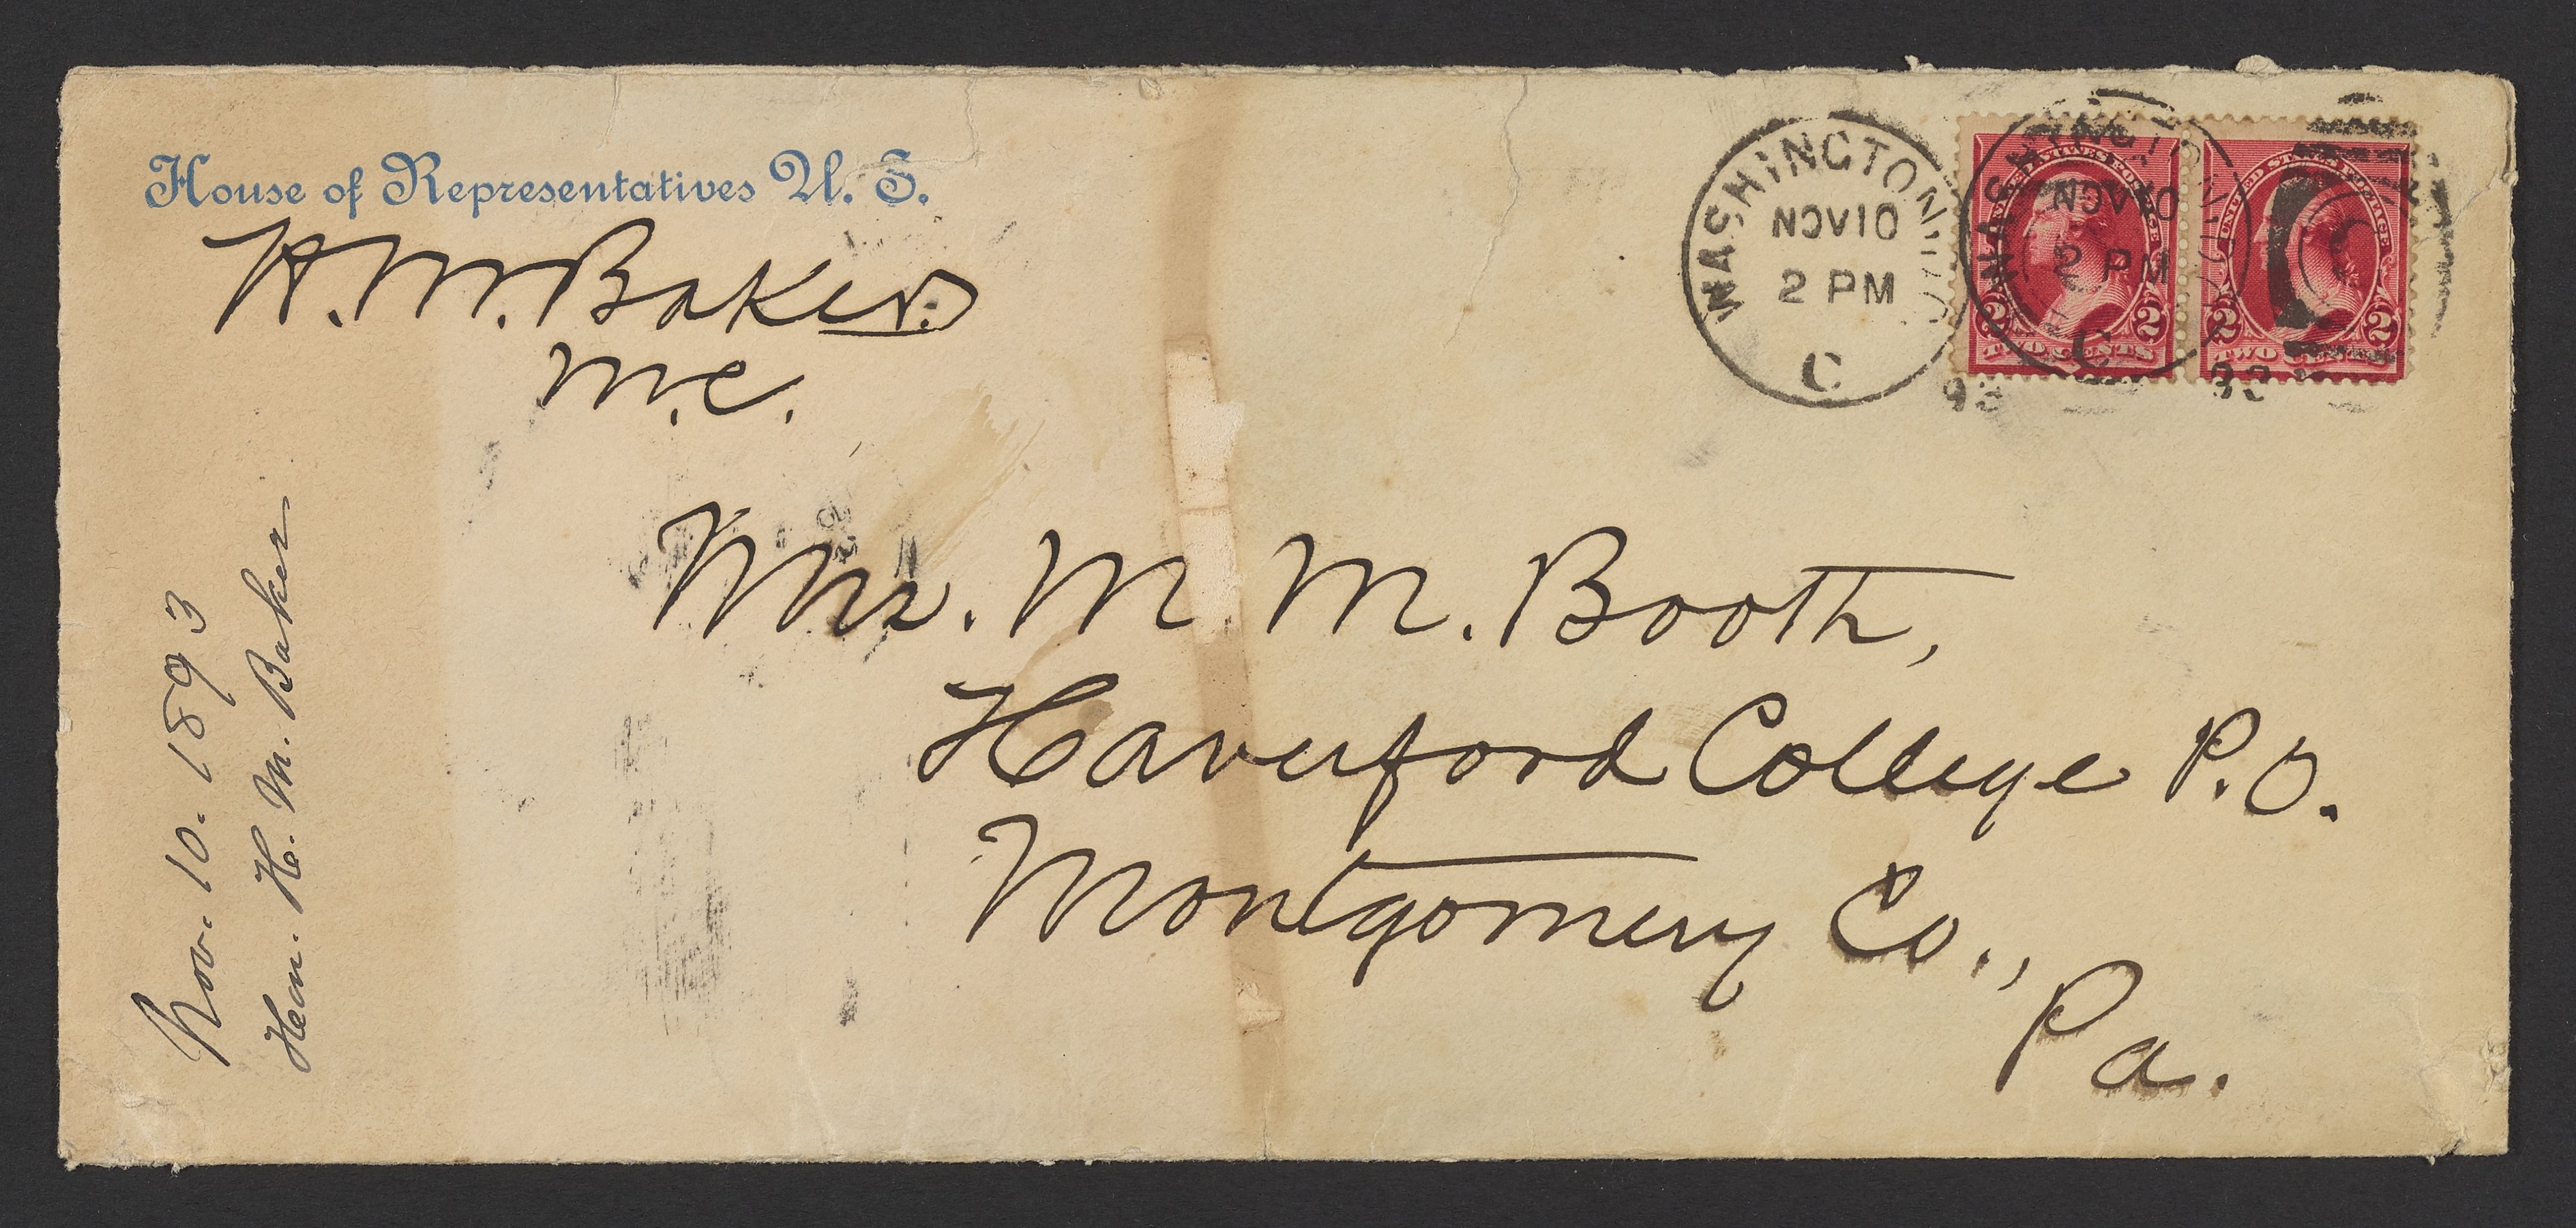 House of Representatives U. S.
H. M. Baker
M.C.
WASHINGTON D.C.
NOV 10
2 PM
C
93
WASHINGTON D.C.
NOV 10
2 PM
C
93
UNITED STATES POSTAGE
2 2
TWO CENTS
UNITED STATES POSTAGE
2 2
TWO CENTS
C
Mrs. M. M. Booth,
Haverford College P.O.
Montgomery Co.,
Pa.
Nov. 10. 1893
Hon. H. M. Baker